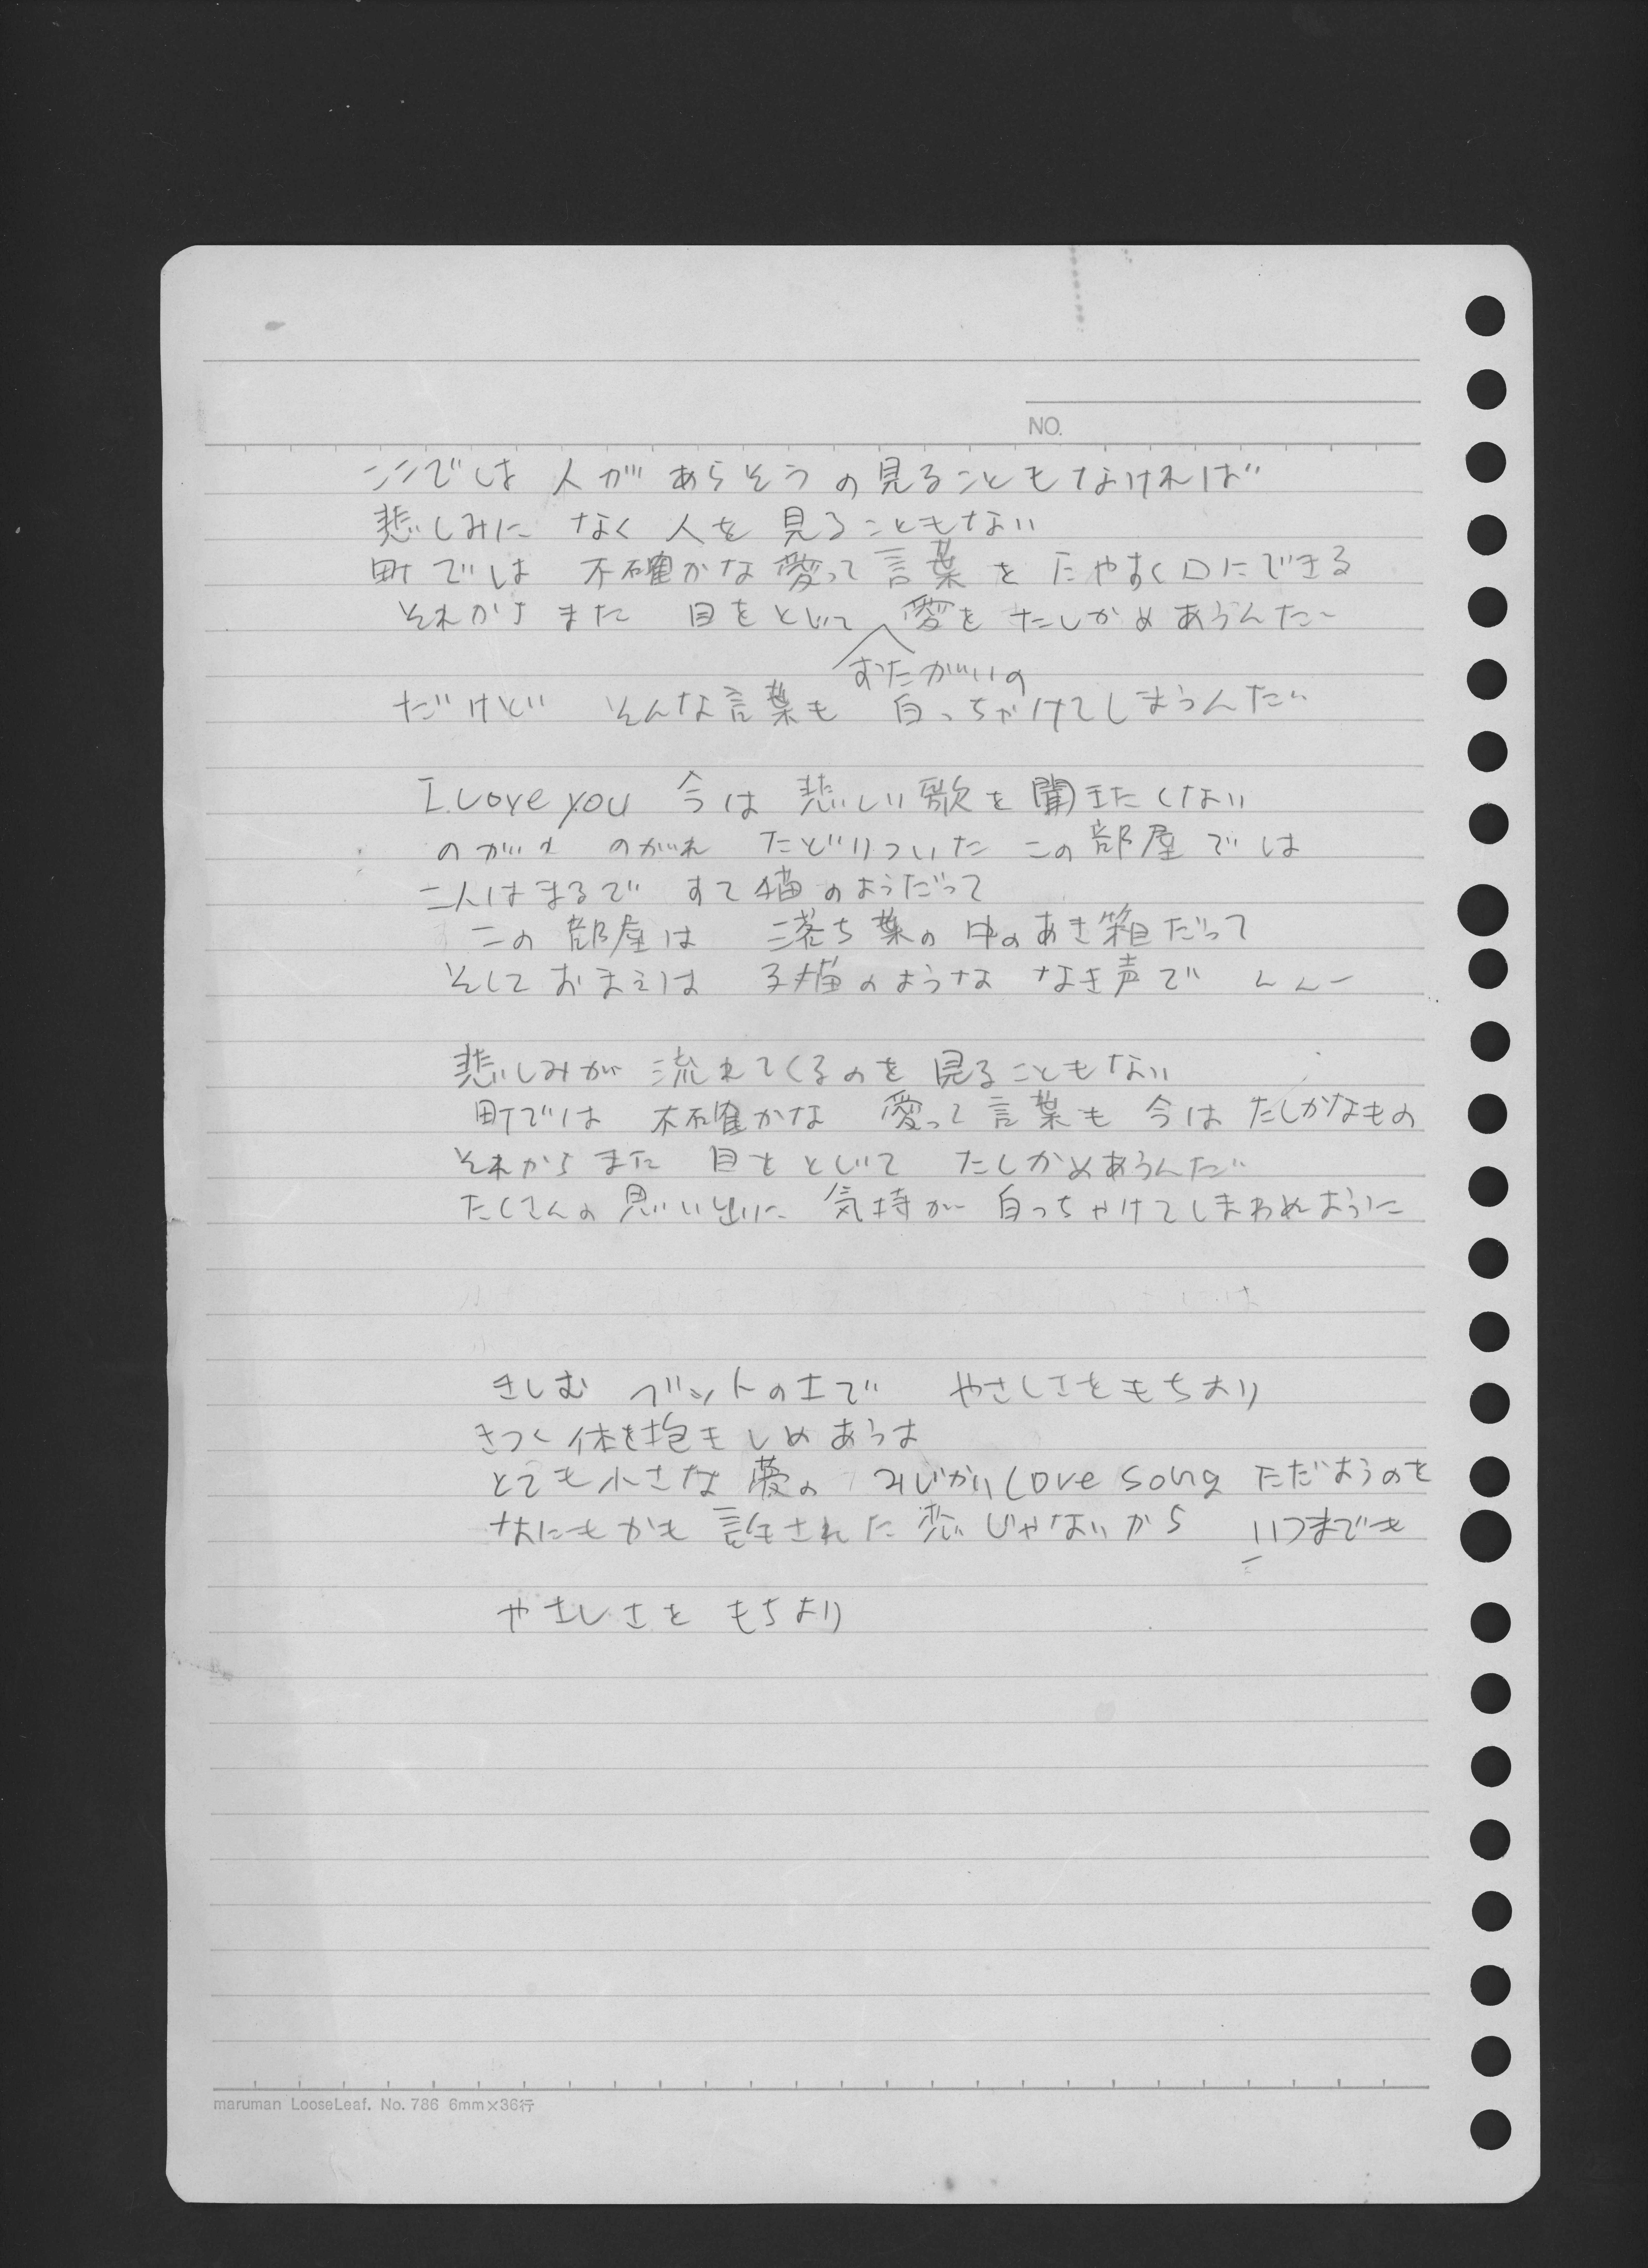 NO.
ここでは 人が あらそうの見ることもなければ
悲しみに なく 人を 見ることもない
町では 不確かな愛って言葉を たやすく口にできる
それからまた 目をとじて 愛を たしかめあうんだ
おたがいの
だけど そんな言葉も 白っちゃけてしまうんだ
I Love you 今は 悲しい歌を 聞きたくない
のがれ のがれ たどりついた この部屋では
二人はまるで すて猫のようだって
この部屋は 落ち葉の中のあき箱だって
そしておまえは 子猫のような なき声で んんー
悲しみが 流れてくるのを 見ることもない
町では 不確かな 愛って言葉も 今は たしかなもの
それからまた 目をとじて たしかめあうんだ
たくさんの思い出に 気持が 白っちゃけてしまわぬように
きしむ ベットの上で やさしさをもちより
きつく体を抱きしめあうは
とても小さな夢の みじかい Love song ただようのを
なにもかも 許された恋じゃないから いつまでも
やさしさを もちより
maruman LooseLeaf. No. 786 6mm×36行